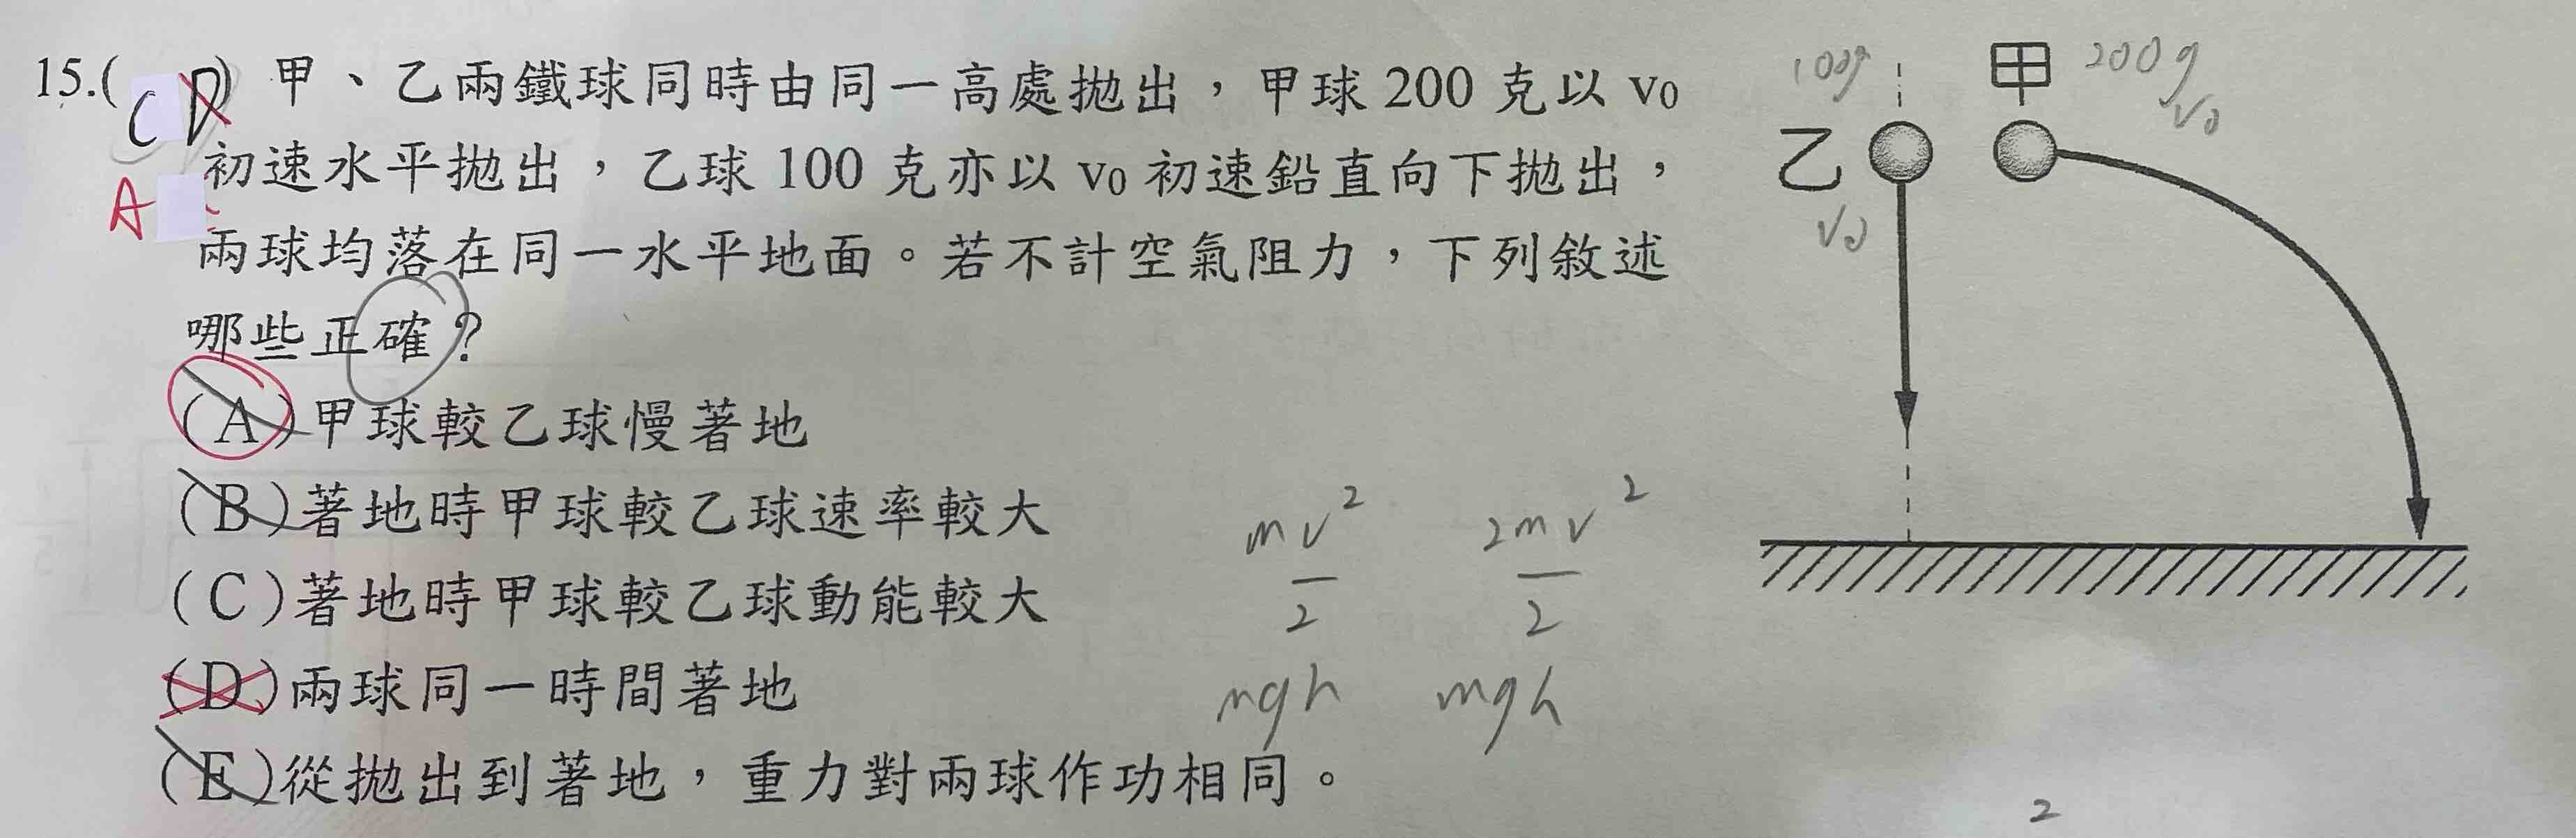 15.( C D ) 甲、乙兩鐵球同時由同一高處拋出，甲球 200 克以 v0
A 初速水平拋出，乙球 100 克亦以 v0 初速鉛直向下拋出，
兩球均落在同一水平地面。若不計空氣阻力，下列敘述
哪些正確？
(A)甲球較乙球慢著地
(B)著地時甲球較乙球速率較大
(C)著地時甲球較乙球動能較大
(D)兩球同一時間著地
(E)從拋出到著地，重力對兩球作功相同。
mv²/2 2mv²/2
mgh mgh
100g 甲 200g
v0
乙
v0
2